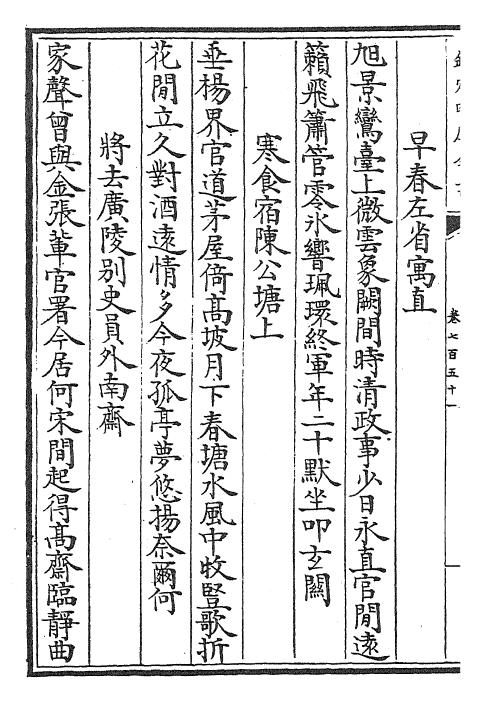 早春左省寓直
旭景鸞臺上微雲象闕間時清政事少日永直官閒遠
籟飛簫管零冰響珮環終軍年二十默坐叩玄關
寒食宿陳公塘上
垂楊界官道茅屋倚髙坡月下春塘水風中牧豎歌折
花閒立久對酒遠情多今夜孤亭夢悠揚奈爾何
將去廣陵別史員外南齋
家聲曾與金張軰官署今居何宋間起得髙齋臨靜曲
卷七百五十一